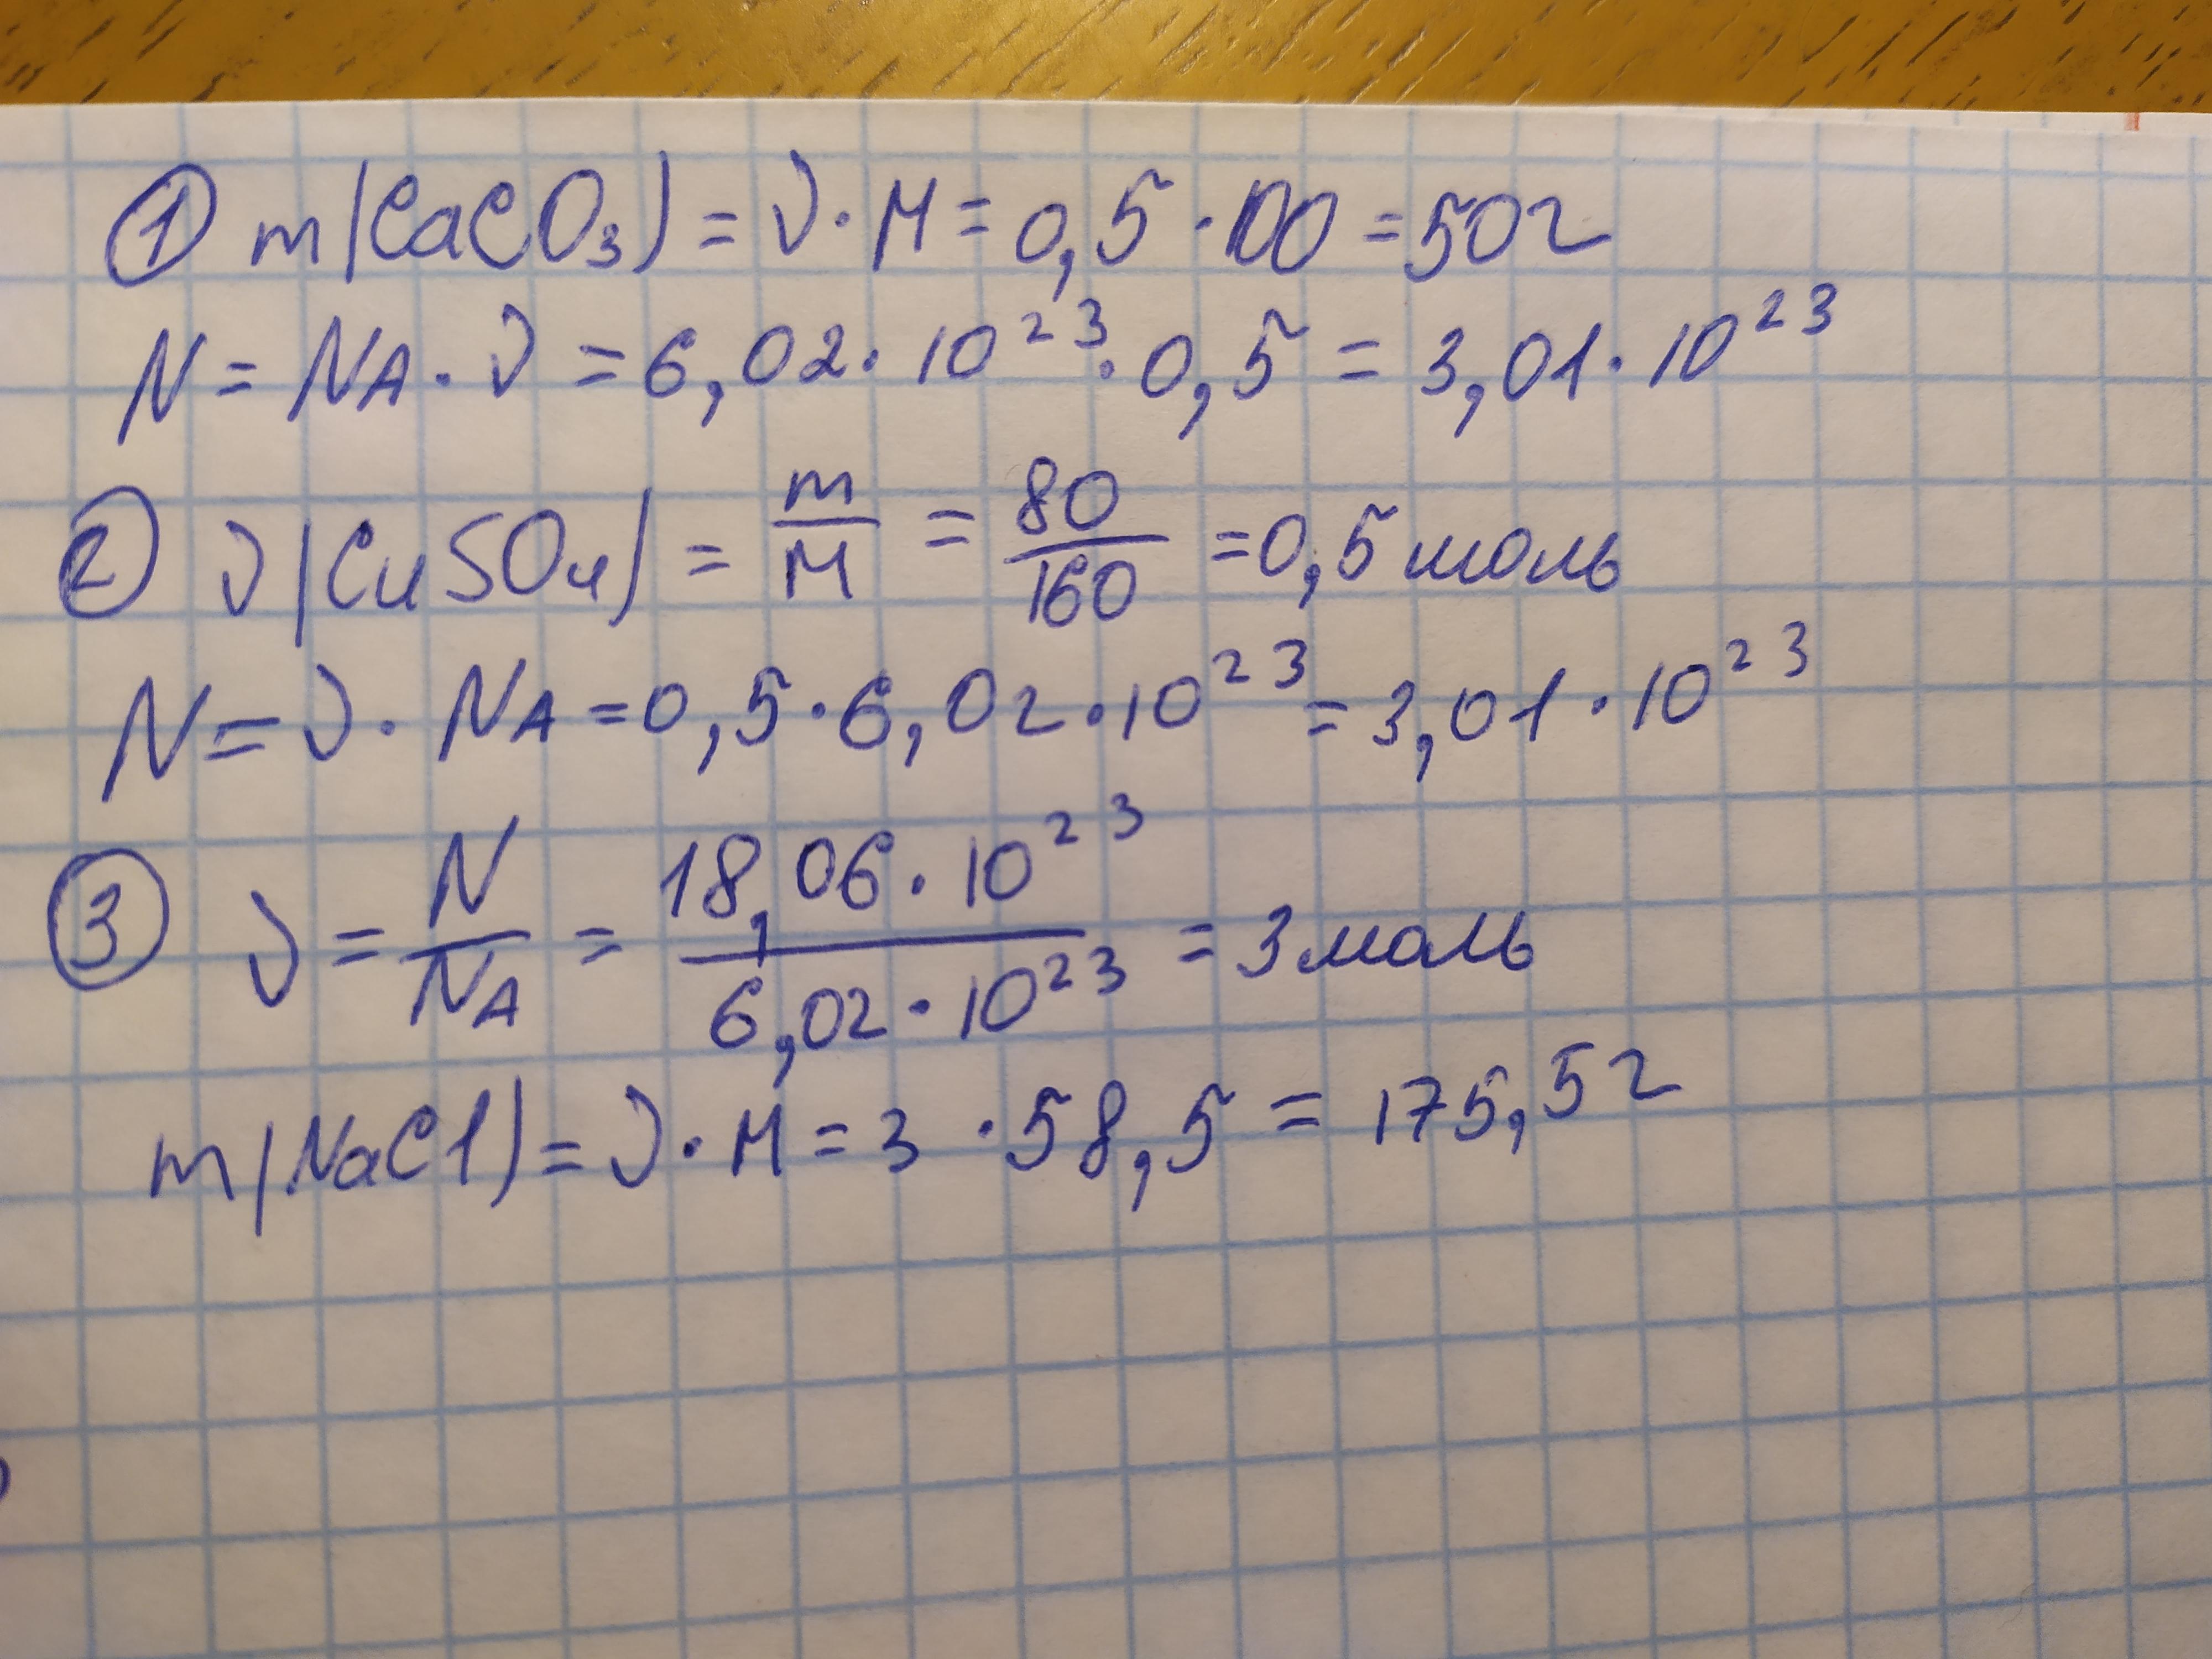 ① m(CaCO₃) = ν · M = 0,5 · 100 = 50г
N = NA · ν = 6,02 · 10²³ · 0,5 = 3,01 · 10²³
② ν(CuSO₄) = m/M = 80/160 = 0,5 моль
N = ν · NA = 0,5 · 6,02 · 10²³ = 3,01 · 10²³
③ ν = N/NA = 18,06 · 10²³/6,02 · 10²³ = 3 моль
m(NaCl) = ν · M = 3 · 58,5 = 175,5г